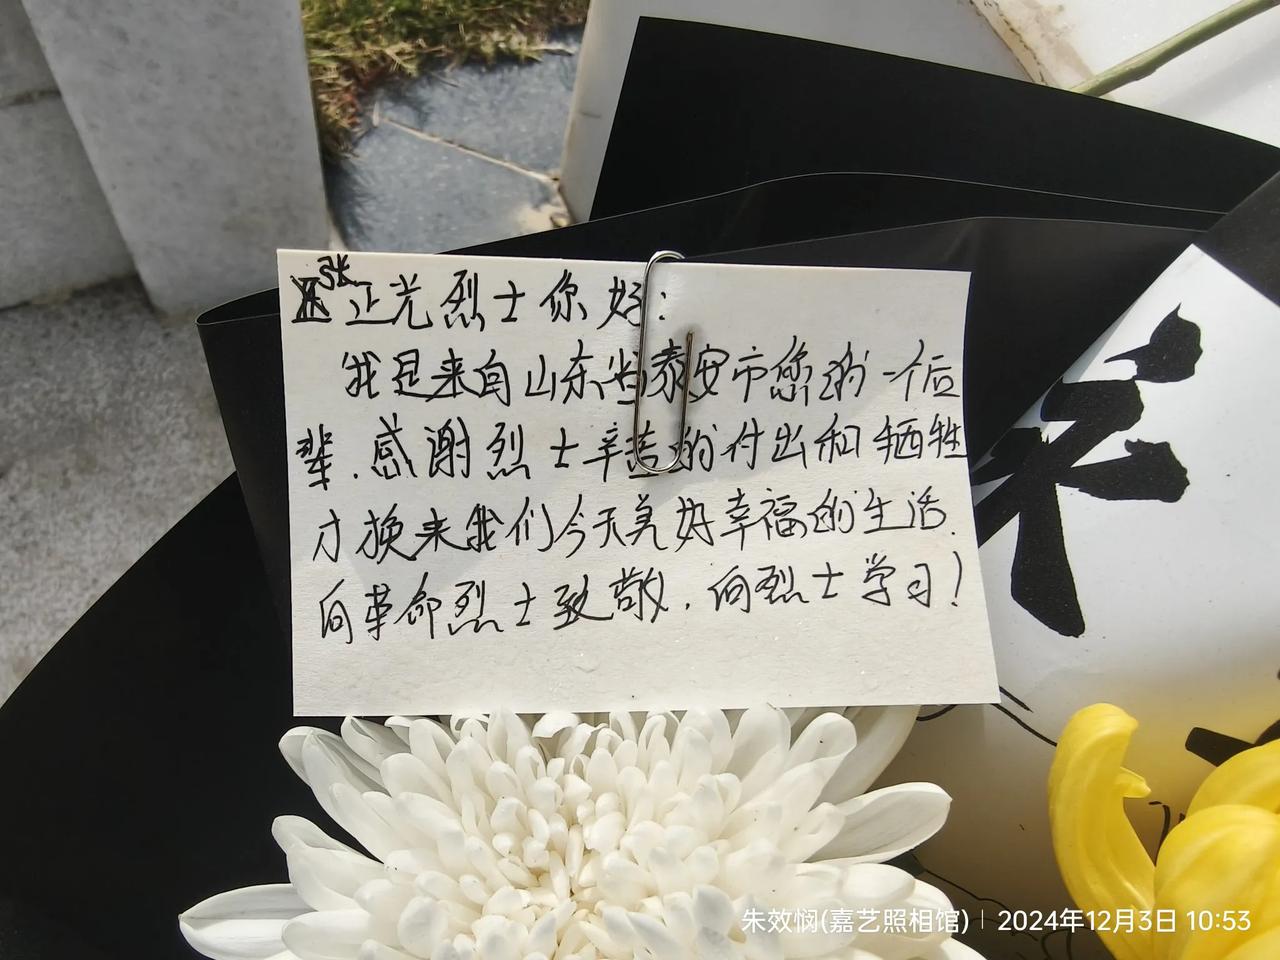 张正光烈士你好：
我是来自山东省泰安市您的一个后
辈.感谢烈士辛苦的付出和牺牲
才换来我们今天美好幸福的生活.
向革命烈士致敬.向烈士学习!
朱效悯(嘉艺照相馆) | 2024年12月3日 10:53